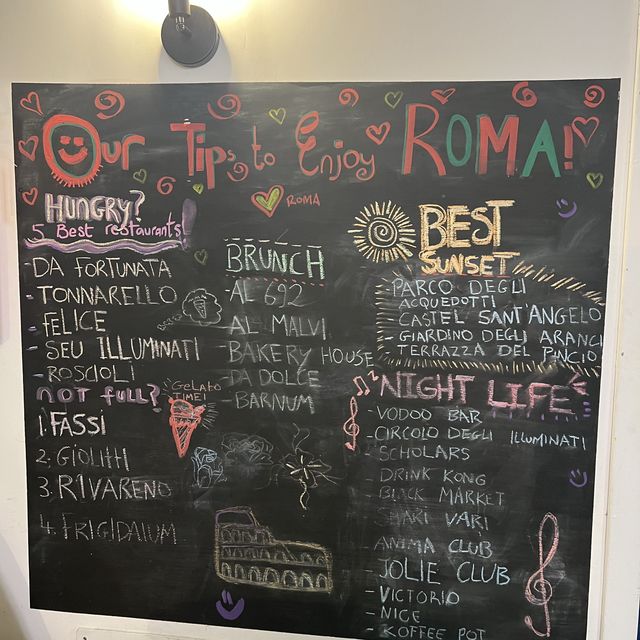 Our Tips to Enjoy ROMA!
ROMA
HUNGRY?
5 Best restaurants!
- DA FORTUNATA
- TONNARELLO
- FELICE
- SEU ILLUMINATI
- ROSCIOLI
NOT FULL?
Gelato
TIME!
1. FASSI
2. GIOLITTI
3. RIVARENO
4. FRIGIDAIUM
BRUNCH
- AL 692
- AL MALVI
- BAKERY HOUSE
- DA DOLCE
- BARNUM
BEST
SUNSET
- PARCO DEGLI
ACQUEDOTTI
- CASTEL SANT'ANGELO
- GIARDINO DEGLI ARANCI
- TERRAZZA DEL PINCIO
NIGHT LIFE
- VODOO BAR
- CIRCOLO DEGLI ILLUMINATI
- SCHOLARS
- DRINK KONG
- BLACK MARKET
- SHARI VARI
- ANIMA CLUB
- JOLIE CLUB
- VICTORIO
- NICE
- KOFFEE POT